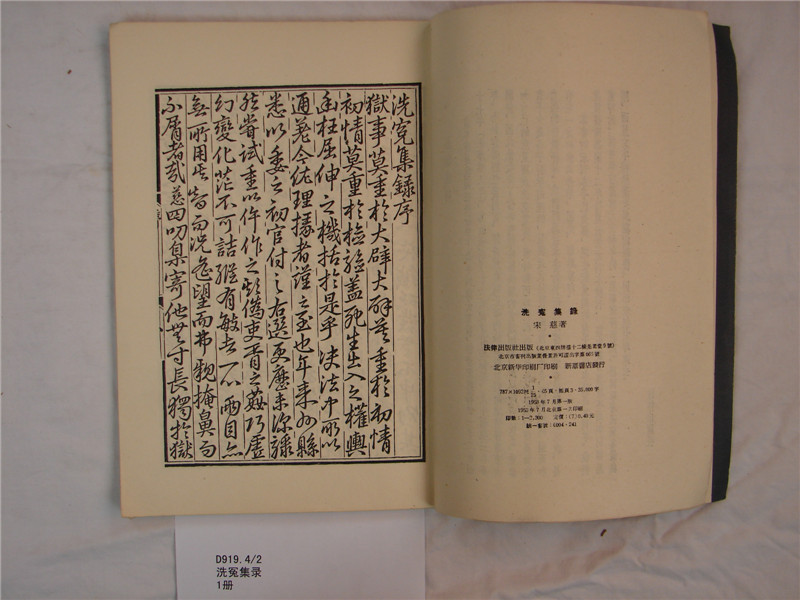 洗冤集録序
獄事莫重於大辟大辟莫重於初情
初情莫重於檢驗蓋死生出入之權輿
幽枉屈伸之機括於是乎決法中所以
通差令佐理掾者謹之至也年来州縣
悉以委之初官付之右選更歷未深驟
然嘗試重以仵作之欺偽吏胥之姦巧虛
幻變化茫不可詰縱有敏者一心兩目亦
無所用其智而況遙望而弗親掩鼻而
不屑者哉慈四叨臬寄他無寸長獨於獄
洗冤集錄
宋慈著
法律出版社出版
北京市書刊出版業營業許可證出字第
北京新华印刷厂印刷 新華書店發行
787×1092 1/25
1958年2月第一版
1958年7月北京第一次印刷
印數:1—2,300 定價:(7)0.40元
統一書號:6004·241
D919.4/2
洗冤集录
1册